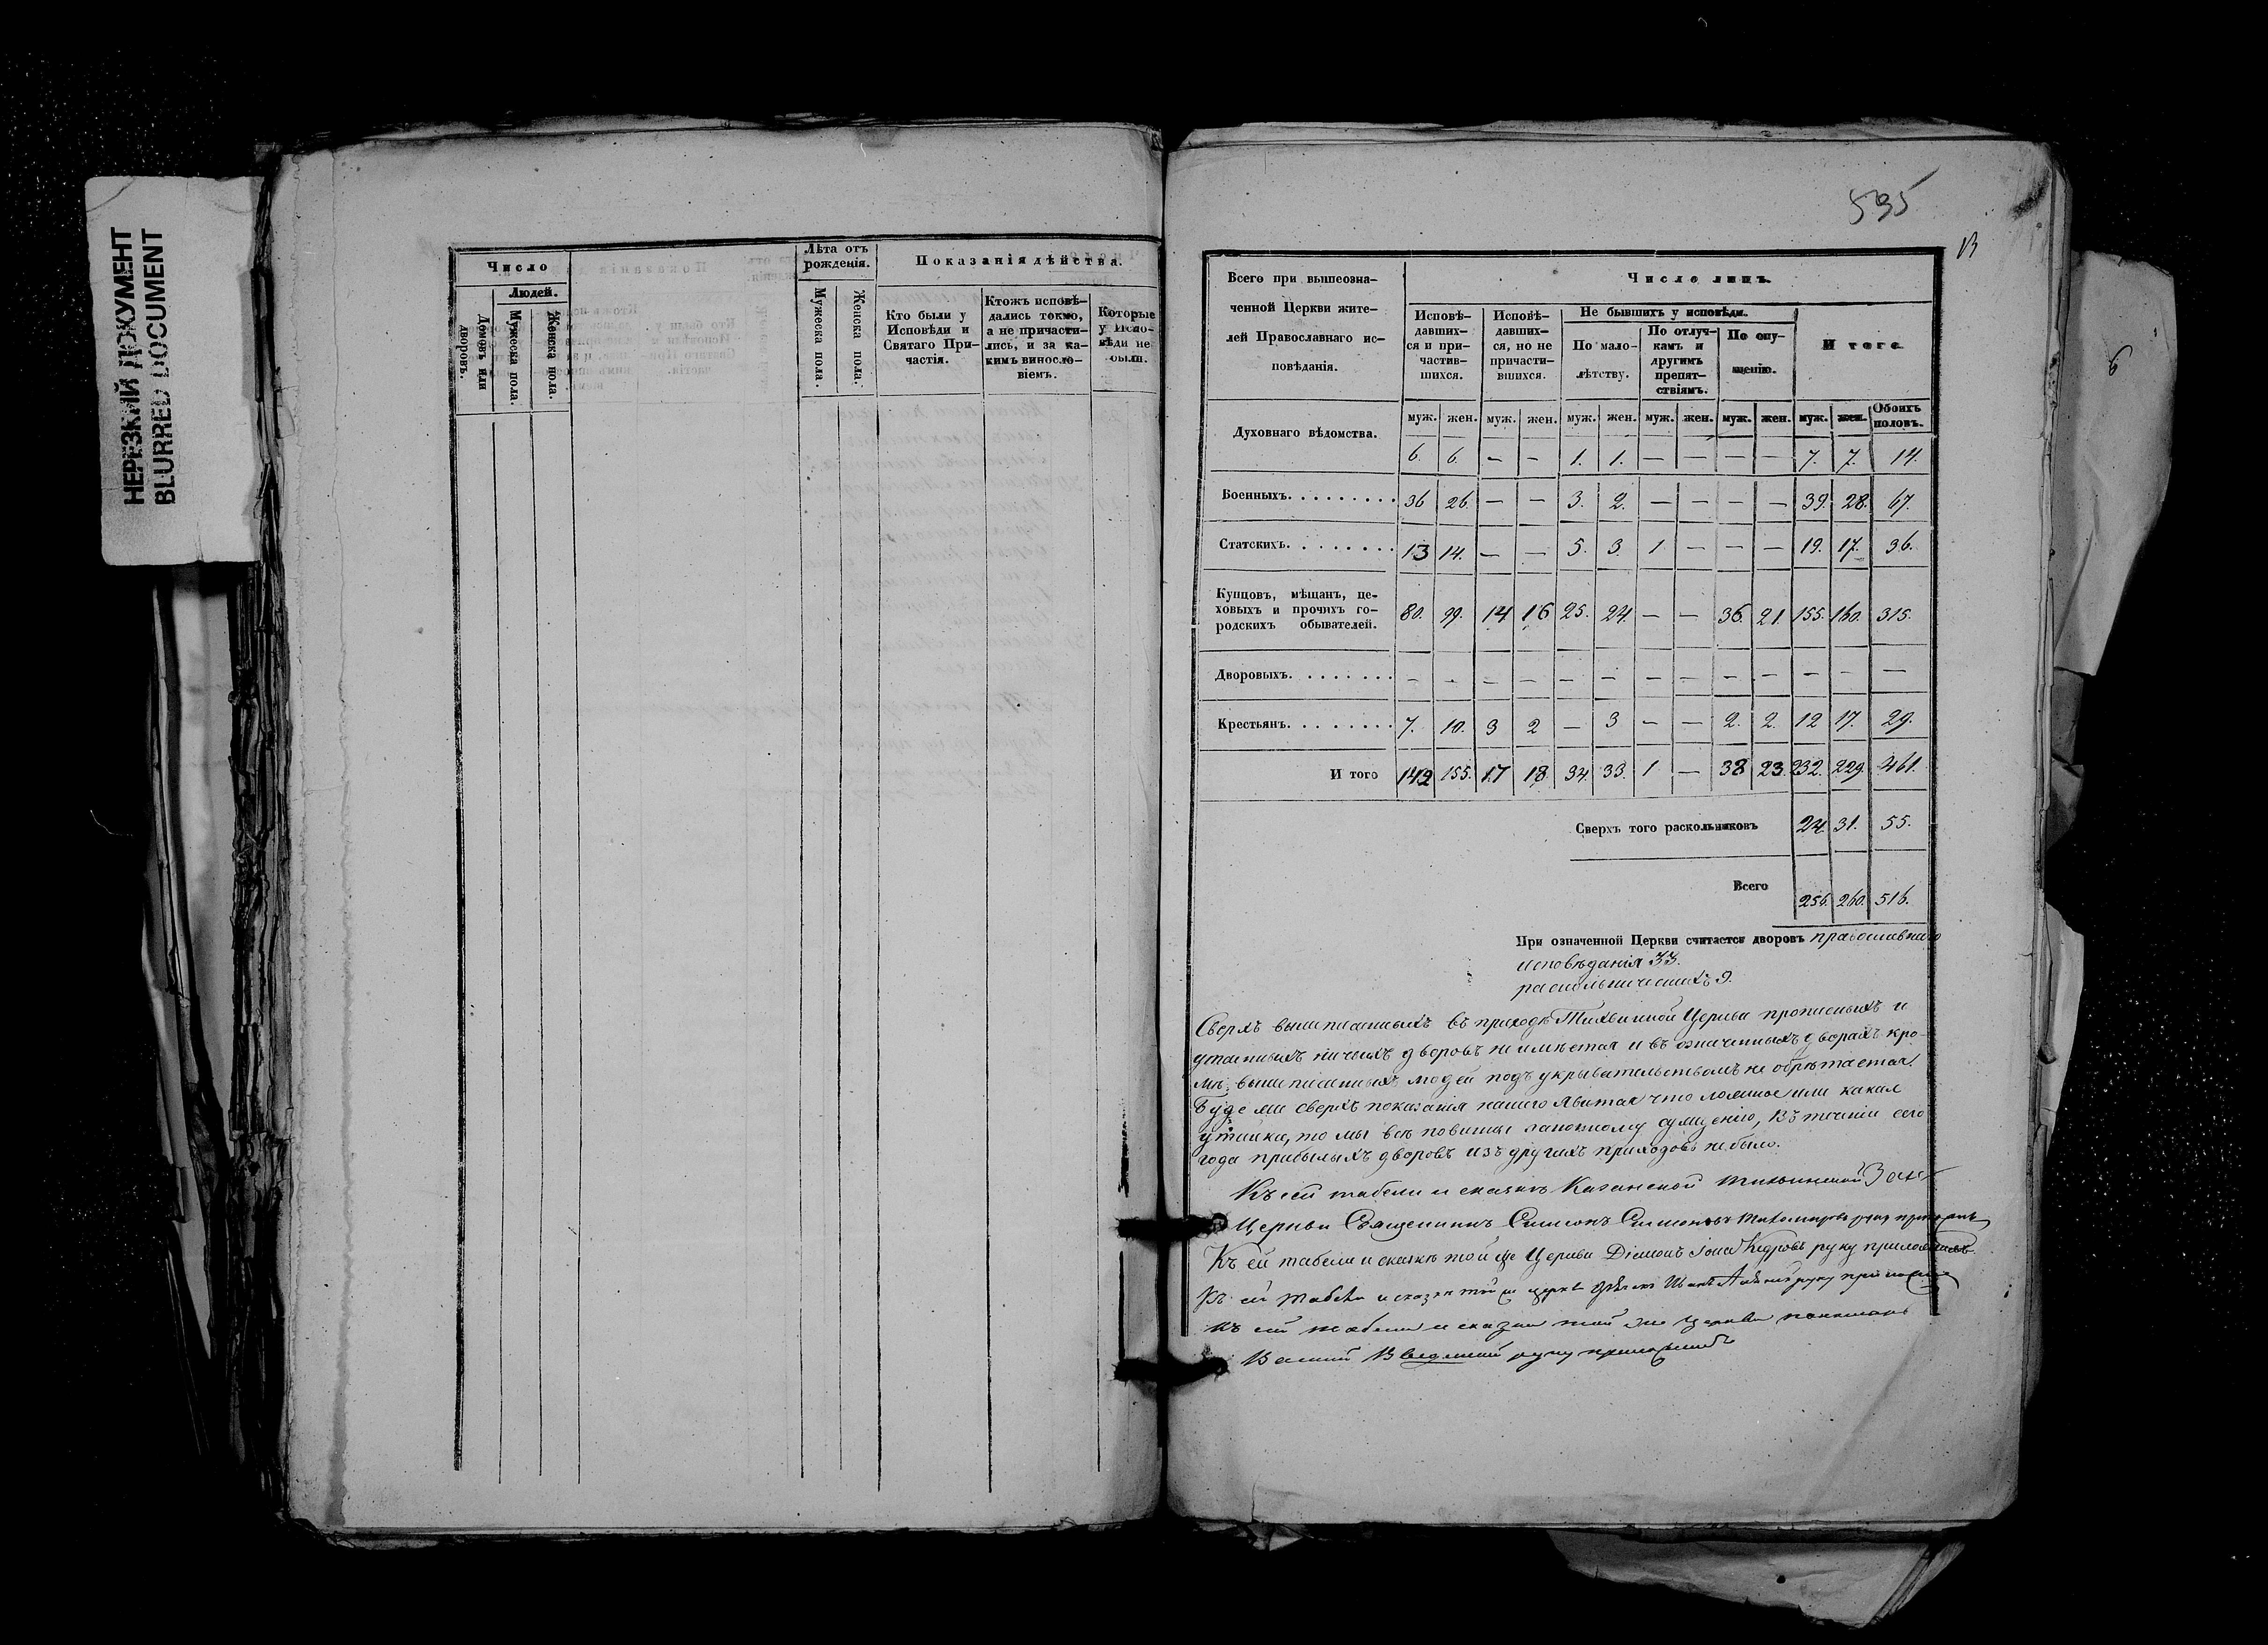 НЕРЕЗКИЙ ДОКУМЕНТ
BLURRED DOCUMENT
Число
Людей.
Домовъ или дворовъ.
Мужеска пола.
Женска пола.
Лѣта отъ рожденія.
Мужеска пола.
Женска пола.
Показанія дѣйства.
Кто были у
Исповѣди и
Святаго При-
частія.
Ктожъ исповѣ-
дались токмо,
а не причасти-
лись, и за ка-
кимъ винносло-
віемъ.
Которые
у Испо-
вѣди не
были.
535
13
6
Всего при вышеозна-
ченной Церкви жите-
лей Православнаго ис-
повѣданія.
Число лицъ.
Исповѣ-
давших-
ся и при-
частив-
шихся.
Исповѣ-
давших-
ся, но не
причасти-
вшихся.
Не бывшихъ у исповѣди.
По мало-
лѣтству.
По отлуч-
камъ и
другимъ
препят-
ствіямъ.
По опу-
щенію.
И того
муж. жен. муж. жен. муж. жен. муж. жен. муж. жен. муж. жен. Обоихъ половъ.
Духовнаго вѣдомства. 6. 6. — — 1. 1. — — — — 7. 7. 14.
Военныхъ. 36 26. — — 3. 2. — — — — 39. 28. 67.
Статскихъ. 13 14. — — 5. 3. 1 — — — 19. 17. 36.
Купцовъ, мѣщанъ, це-
ховыхъ и прочихъ го-
родскихъ обывателей. 80. 99. 14 16 25. 24. — — 36. 21. 155. 160. 315.
Дворовыхъ. — — — — — — — — — — — — —
Крестьянъ. 7. 10. 3 2 — 3 — — 2. 2. 12 17. 29.
И того 142 155. 17 18. 34. 33. 1 — 38 23. 232. 229. 461.
Сверхъ того раскольниковъ 24. 31. 55.
Всего 256. 260. 516.
При означенной Церкви считается дворовъ православнаго
исповѣданія 33.
раскольническихъ 9.
Сверхъ вышеписанныхъ въ приходѣ Тихвинской Церкви прописныхъ и
утаенныхъ ничьихъ дворовъ не имѣется и въ означенныхъ дворахъ кро-
мѣ вышеписанныхъ людей подъ укрывательствомъ не обрѣтается.
Буде ли сверхъ показанія нашего явится что ложное или какая
утайка, то мы всѣ повинны законному сужденію, Въ теченіи сего
года прибылыхъ дворовъ изъ другихъ приходовъ не было.
Къ сей табели и сказкѣ Казанской Тихвинской
Церкви Священникъ Симеонъ Симеоновъ Тихомировъ руку приложилъ
Къ сей табели и сказкѣ той же Церкви Діаконъ Іона Кедровъ руку приложилъ.
Къ сей табели и сказки той же церкви дьячекъ Иванъ руку приложилъ
Къ сей табели и сказки той же Церкви пономарь
Василій Введенскій руку приложилъ